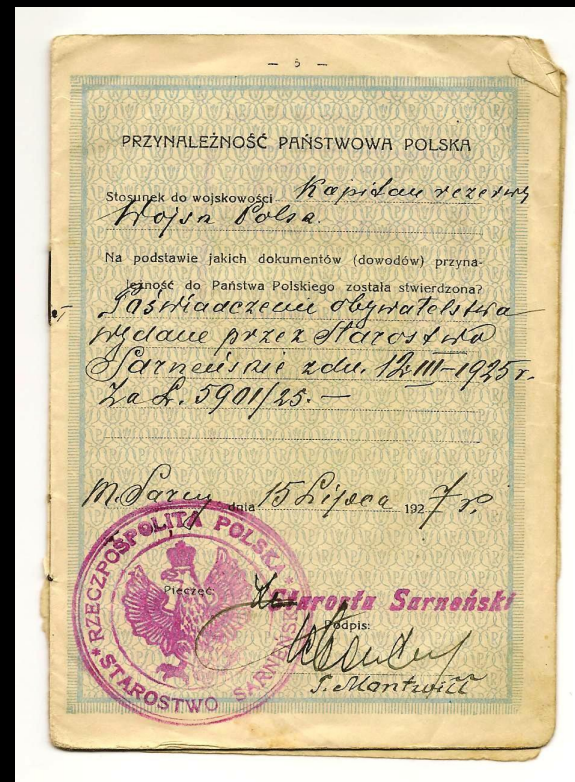 - 5 -
PRZYNALEŻNOŚĆ PAŃSTWOWA POLSKA
Stosunek do wojskowości Kapitan rezerwy
Wojsk Polsk.
Na podstawie jakich dokumentów (dowodów) przyna-
leżność do Państwa Polskiego została stwierdzona?
Zaświadczenie obywatelstwa
wydane przez Starostwo
Sarneńskie z dn. 12-III-1925 r.
Za L. 5901/25. —
M. Sarny dnia 15 Lipca 1927 r.
RZECZPOSPOLITA POLSKA
STAROSTWO SARNEŃSKIE
Pieczęć:
Za Starosta Sarneński
Podpis:
T. Montwiłł